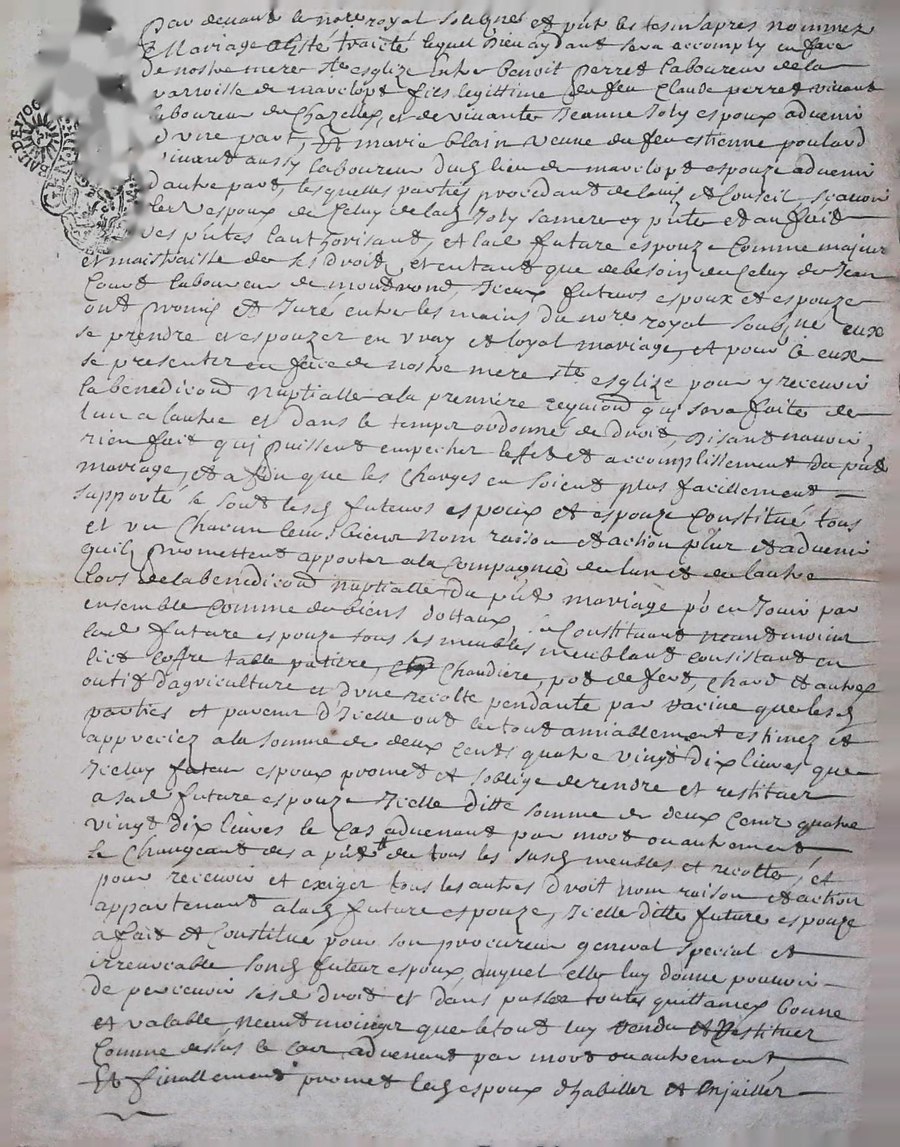 Par devant le nore royal soubsigné et pnt les tesm apres nommez
Mariage a esté traicté lequel Dieu aydant sera accomply en face
de nostre mere ste esglize Entre benoit perret laboureur de la
parroisse de marclopt fils legittime de feu Claude perret vivant
laboureur de Chazelles et de vivante Jeanne Joly espoux advenir
d'une part, Et marie blain veuve de feu estienne poulard
vivant aussy laboureur dud lieu de marclopt espouze advenir
d'autre part, lesquelles parties procedant de l'advis et Conseil, scavoir
led espoux de Celuy de lad Joly sa mere cy pnte et au fait
des pntes l'authorisant, et lad future espouze Comme majeur
et maistraisse de ses droits, et en tant que de besoin de Celuy de Jean
laboureur de mondrond, Iceux futurs espoux et espouze
ont promis et Juré entre les mains du nore royal soubsigné eux
se prendre et espouzer en vray et loyal mariage, et pour ce eux
se presenter en face de nostre mere ste esglize pour y recevoir
la benediction nuptialle a la premiere requision qui sera faite de
l'un a l'autre et dans le temps ordonné de droit, Disant n'avoir
rien fait qui puissent empecher l'effet et accomplissement du pnt
mariage, et afin que les Charges en soient plus facillement
supporté se sont lesd futurs espoux et espouze Constitué tous
et un Chacun leurs biens nom raison et action pnt et advenir
qu'ils promettent apporter a la Compagnie de l'un et de l'autre
lors de la benediction nuptialle du pnt mariage po en Jouir par
ensemble Comme de biens dottaux, Constituant neantmoins
lad future espouze tous ses meubles meublant consistant en
lict coffre table patiere, Chaudiere, pot de fert, Chard et autres
outis d'agriculture et d'une recolte pendante par racine que lesd
parties et parens d'Icelle ont le tout amiablement estimez et
appreciez a la somme de deux cents quatre vingt dix livres que
Iceluy futur espoux promet et s'oblige de rendre et restituer
a sad future espouze Icelle ditte somme de deux Cent quatre
vingt dix livres le Cas advenant par mort ou autrement
le Chargeant des a pnt de tous les susd meubles et recolte, et
pour recevoir et exiger tous les autres droit nom raison et action
appartenant a lad future espouze, Icelle ditte future espouze
a fait et Constitué pour son procureur general special et
irrevocable sond futur espoux, auquel elle luy donne pouvoir
de percevoir sesd droit et d'en passer toutes quittances bonne
et valable, neantmoingt que le tout luy rendu et Restituer
Comme dessus le Cas advenant par mort ou autrement,
Et finallement promet led espoux d'habiller et Enjailler